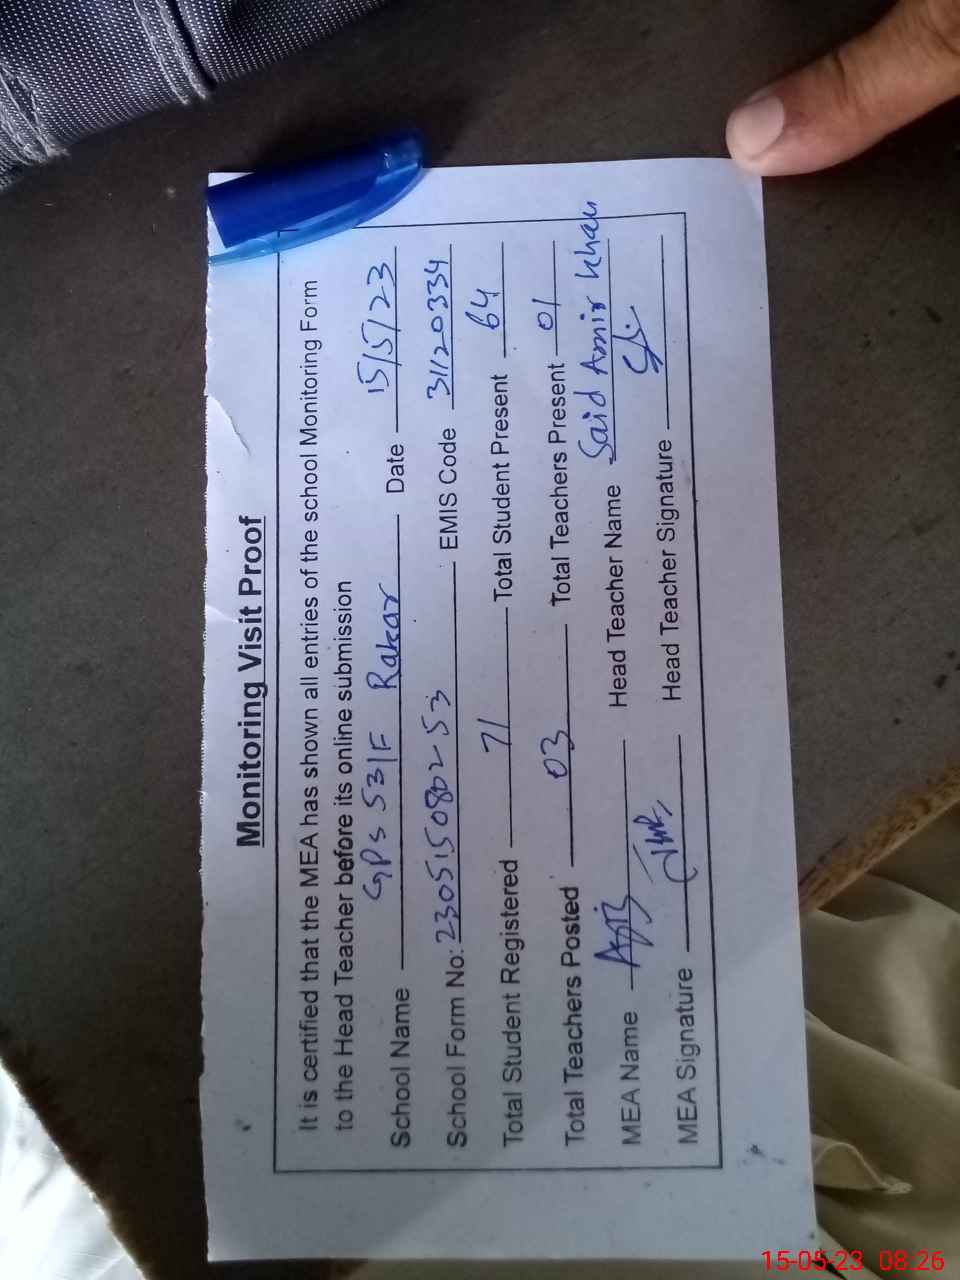 Monitoring Visit Proof
It is certified that the MEA has shown all entries of the school Monitoring Form
to the Head Teacher before its online submission
School Name GPS 531F Rakar Date 15/5/23
School Form No: 230515080253 EMIS Code 31120334
Total Student Registered 71 Total Student Present 64
Total Teachers Posted 03 Total Teachers Present 01
MEA Name Head Teacher Name Said Amir Khan
MEA Signature Head Teacher Signature
15-05-23 08:26